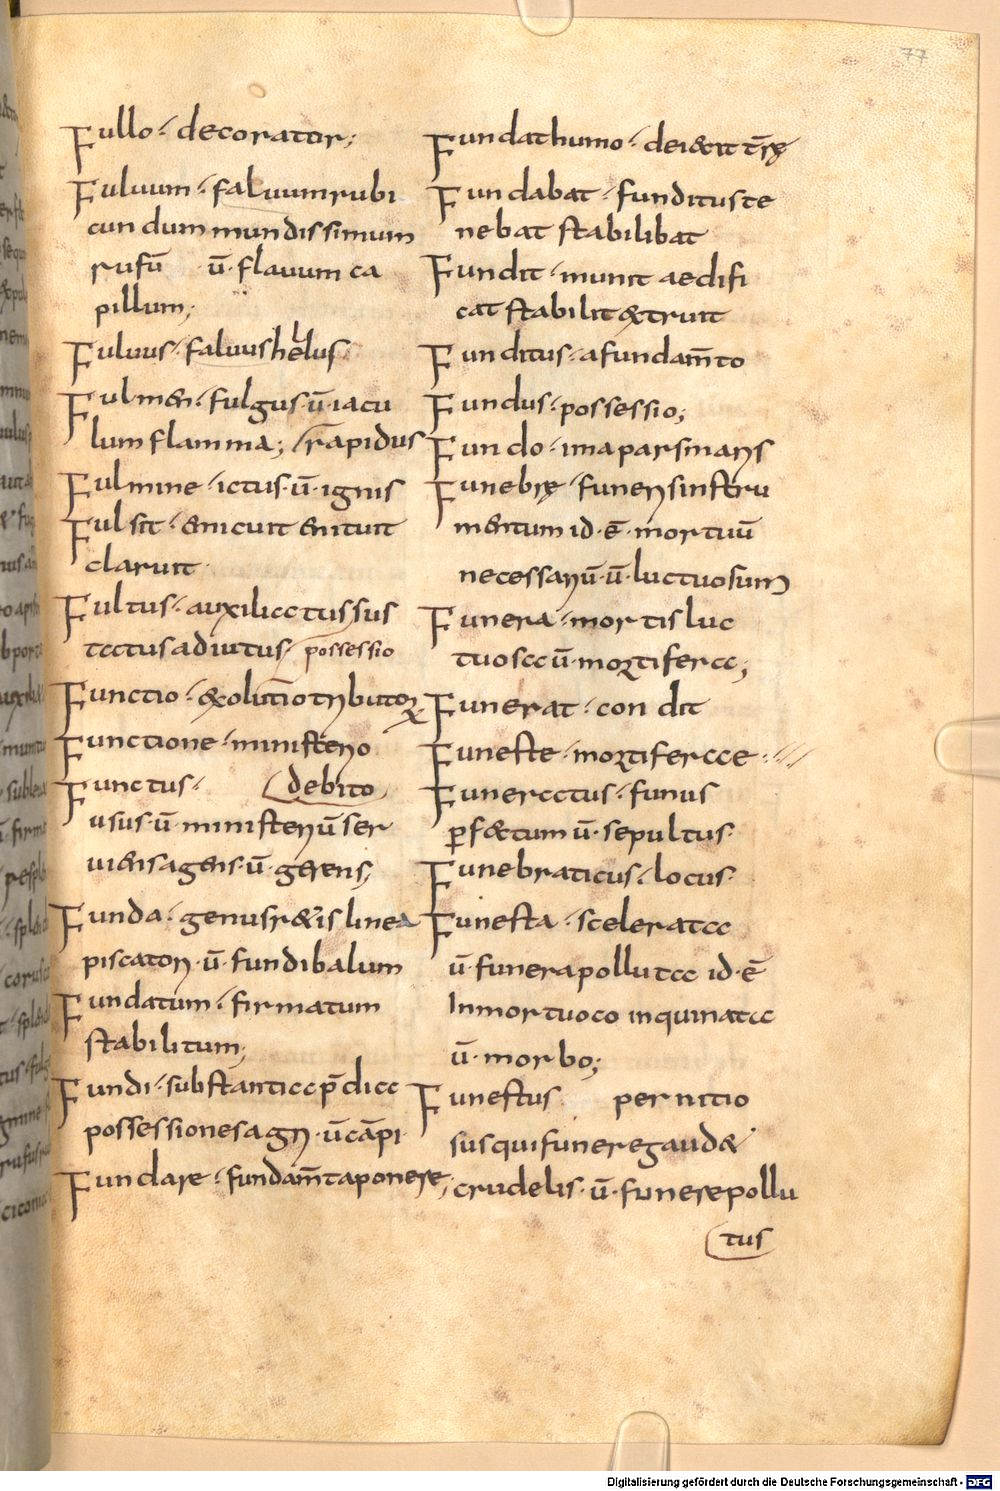 77
Fullo · decorator;
Fuluum · faluum rubi
cundum mundissimum
rufū ū · flauum ca
pillum;
Fuluus · faluus heluus
Fulmen · fulgus · ū · iacu
lum flamma; rapidus
Fulmine · ictus · ū · ignis
Fulsit · enicuit enituit
claruit
Fultus · auxiliatus sus
tatus adiutus · possessio
Functio · exolutio tributorum
Functione · ministerio
Functus · debito
usus · ū · ministeriū ser
uiens agens · ū · gerens;
Funda · genus r&is linea
piscatori · ū · fundibalum
Fundatum · firmatum
stabilitum;
Fundi · substantia p̄dia
possessiones agri · ū cāpi
Fundare · fundam̄ta ponere;
Fundat humo · dei&cit t̄rę
Fundabat · funditus te
nebat stabilibat
Fundit · munit aedifi
cat stabilit &truit
Funditus · a fundam̄to
Fundus · possessio;
Fundo · ima pars maris
Funebrę · funeris instru
mentum id · ē · mortuū
necessariū · ū · luctuosum
Funera · mortis luc
tuosa ū · mortifera;
Funerat · condit
Funeste · mortiferae
Funeratus · funus
ꝑf&ctum ū · sepultus
Funebraticus · locus
Funesta · scelerata
ū · funera polluta id · ē
In mortuo co inquinata
ū · morbo;
Funestus pernitio
sus qui funere gaud&
crudelis · ū · funere pollu
tus
Digitalisierung gefördert durch die Deutsche Forschungsgemeinschaft - DFG